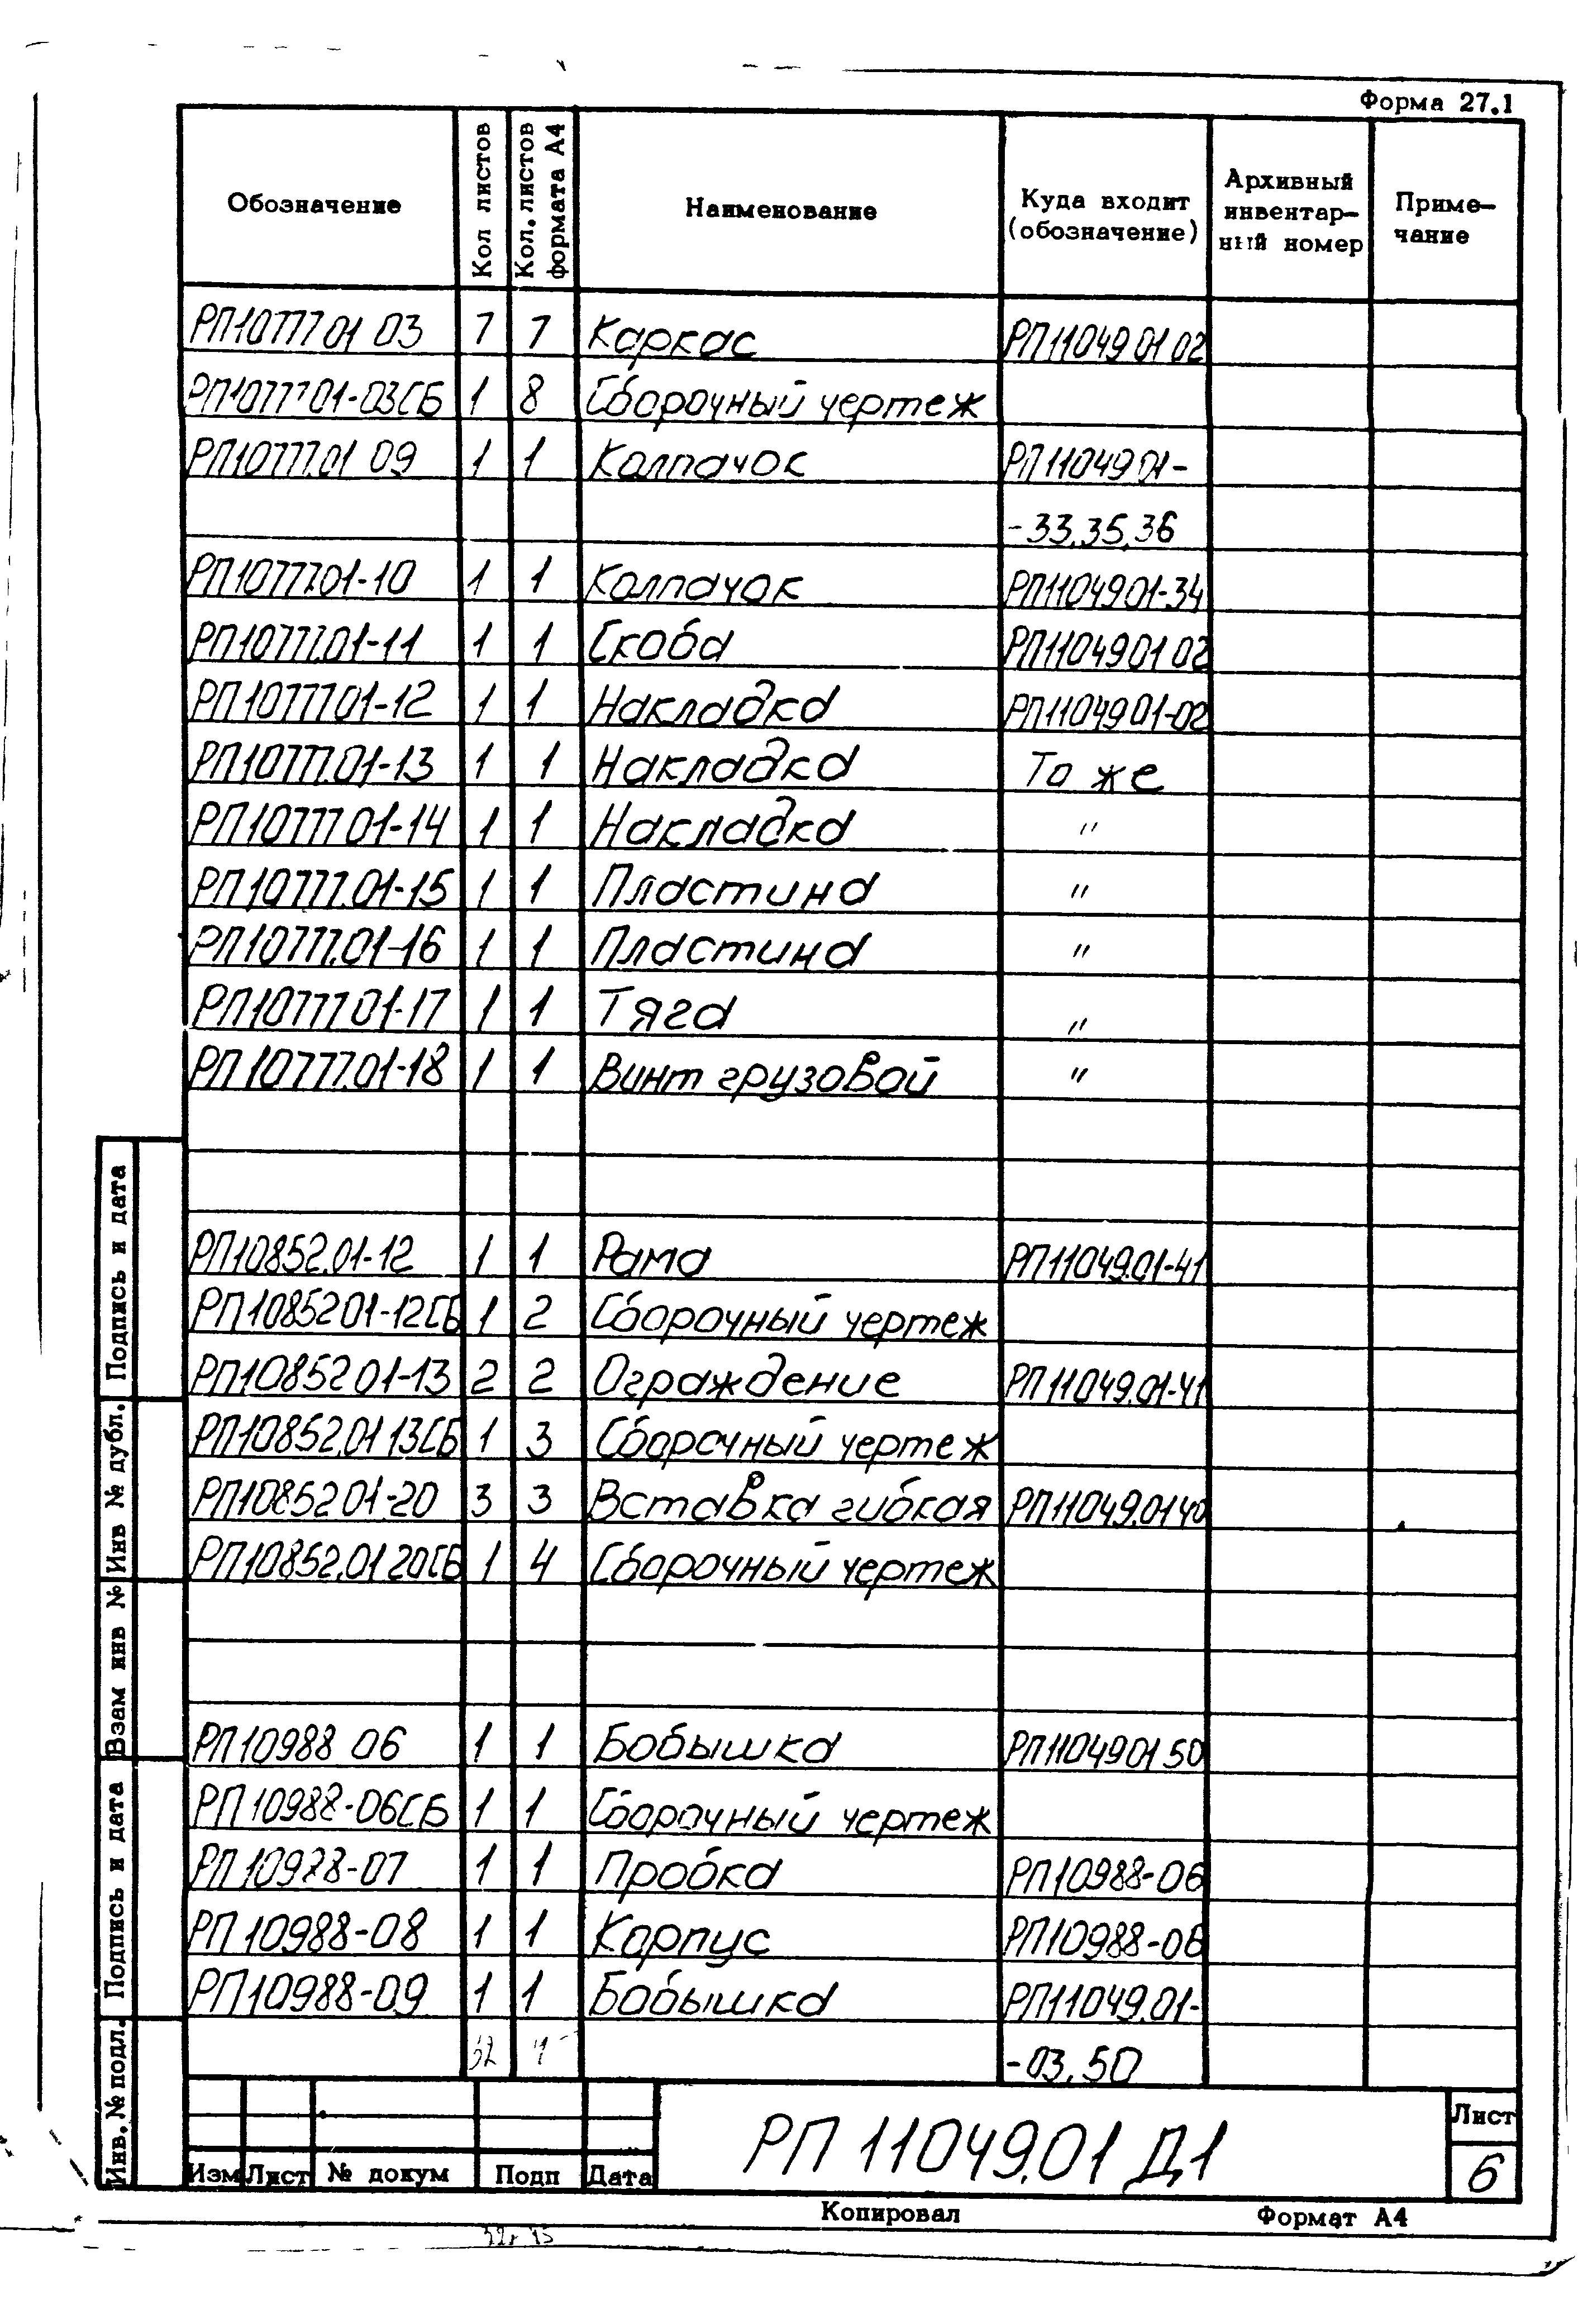 Форма 27.1
Обозначение Кол листов Кол. листов формата А4 Наименование Куда входит (обозначение) Архивный инвентар- ный номер Приме- чание
РП10777 01 03 7 7 Каркас РП11049 01 02
РП10777 01-03СБ 1 8 Сборочный чертеж
РП10777.01 09 1 1 Колпачок РП11049 01-
-33,35,36
РП10777.01-10 1 1 Колпачок РП11049 01-34
РП10777.01-11 1 1 Скоба РП11049 01 02
РП10777 01-12 1 1 Накладка РП11049 01-02
РП10777.01-13 1 1 Накладка То же
РП10777 01-14 1 1 Накладка "
РП10777.01-15 1 1 Пластина "
РП10777.01-16 1 1 Пластина "
РП10777 01-17 1 1 Тяга "
РП10777.01-18 1 1 Винт грузовой "
РП10852.01-12 1 1 Рама РП11049.01-41
РП10852 01-12СБ 1 2 Сборочный чертеж
РП10852 01-13 2 2 Ограждение РП11049.01-41
РП10852.01 13СБ 1 3 Сборочный чертеж
РП10852 01-20 3 3 Вставка гибкая РП11049.01 40
РП10852.01 20СБ 1 4 Сборочный чертеж
РП10988 06 1 1 Бобышка РП11049 01 50
РП10988-06СБ 1 1 Сборочный чертеж
РП10988-07 1 1 Пробка РП10988-06
РП10988-08 1 1 Корпус РП10988-06
РП10988-09 1 1 Бобышка РП11049.01-
-03,50
Подпись и дата
Инв № дубл.
Взам инв №
Подпись и дата
Инв. № подл.
Изм Лист № докум Подп Дата
РП 11049.01 Д1
Лист
6
Копировал Формат А4